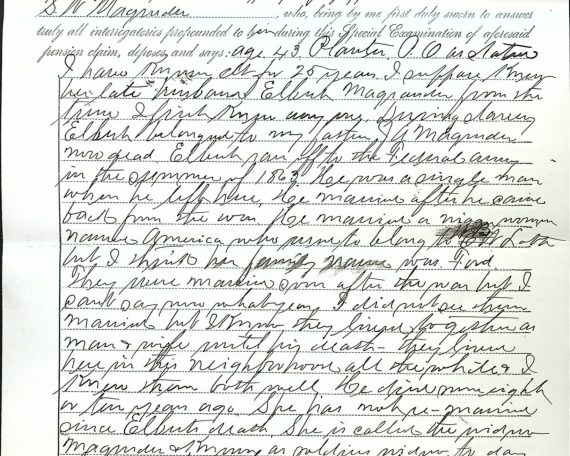 S W Magruder, who, being by me first duly sworn to answer
truly all interrogatories propounded to her during this Special Examination of aforesaid
pension claim, deposes and says: age 43. Planter, P.O. as
I have known clt for 25 years I suppose knew
her late husband Elbert Magruder from the
time I first knew any one. During slavery
Elbert belonged to my father J A Magruder
now dead. Elbert ran off to the Federal army
in the summer of 1863. He was a single man
when he left here. He married after he came
back from the war. He married a woman
named America who used to belong to
but I think her family name was Ford.
They were married soon after the war but I
cant say now what year. I did not see them
married but I know they lived together as
man & wife until his death - they lived
here in this neighborhood all the while & I
knew them both well. He died some eight
or ten years ago. She has not re-married
since Elberts death. She is called the widow
Magruder & known as soldiers widow to day